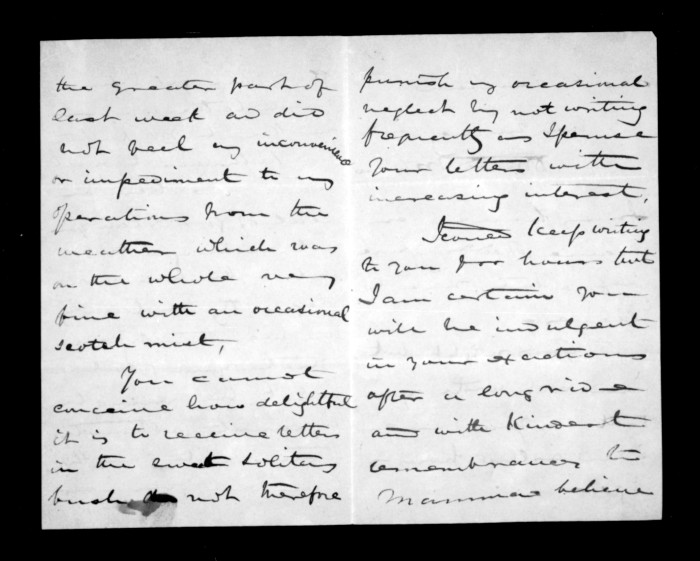 the greater part of
last week and did
not feel any inconvenience
or impediment to my
operations from the
weather which was
on the whole very
fine with an occasional
scotch mist,
You cannot
conceive how delightful
it is to receive letters
in the solitary
bush do not therefore
punish my occasional
neglect by not writing
frequently as I peruse
your letters with
increasing interest.
I could keep writing
to you for hours but
I am certain you
will be indulgent
in your
after a long ride
and with kindest
remembrances to
Mamma believe